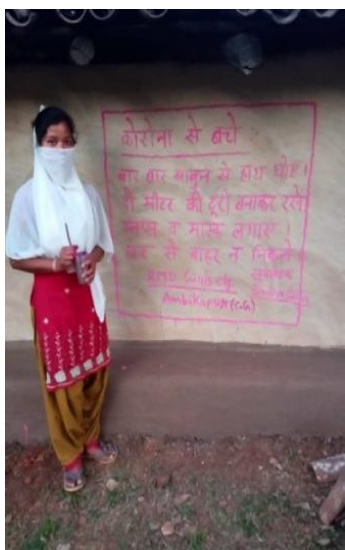 कोरोना से बचे :-
बार बार साबुन से हाथ धोए।
दो मीटर की दूरी बनाकर रखे
व मास्क लगाए।
घर से बाहर न निकले
Ambikapur (C.G)